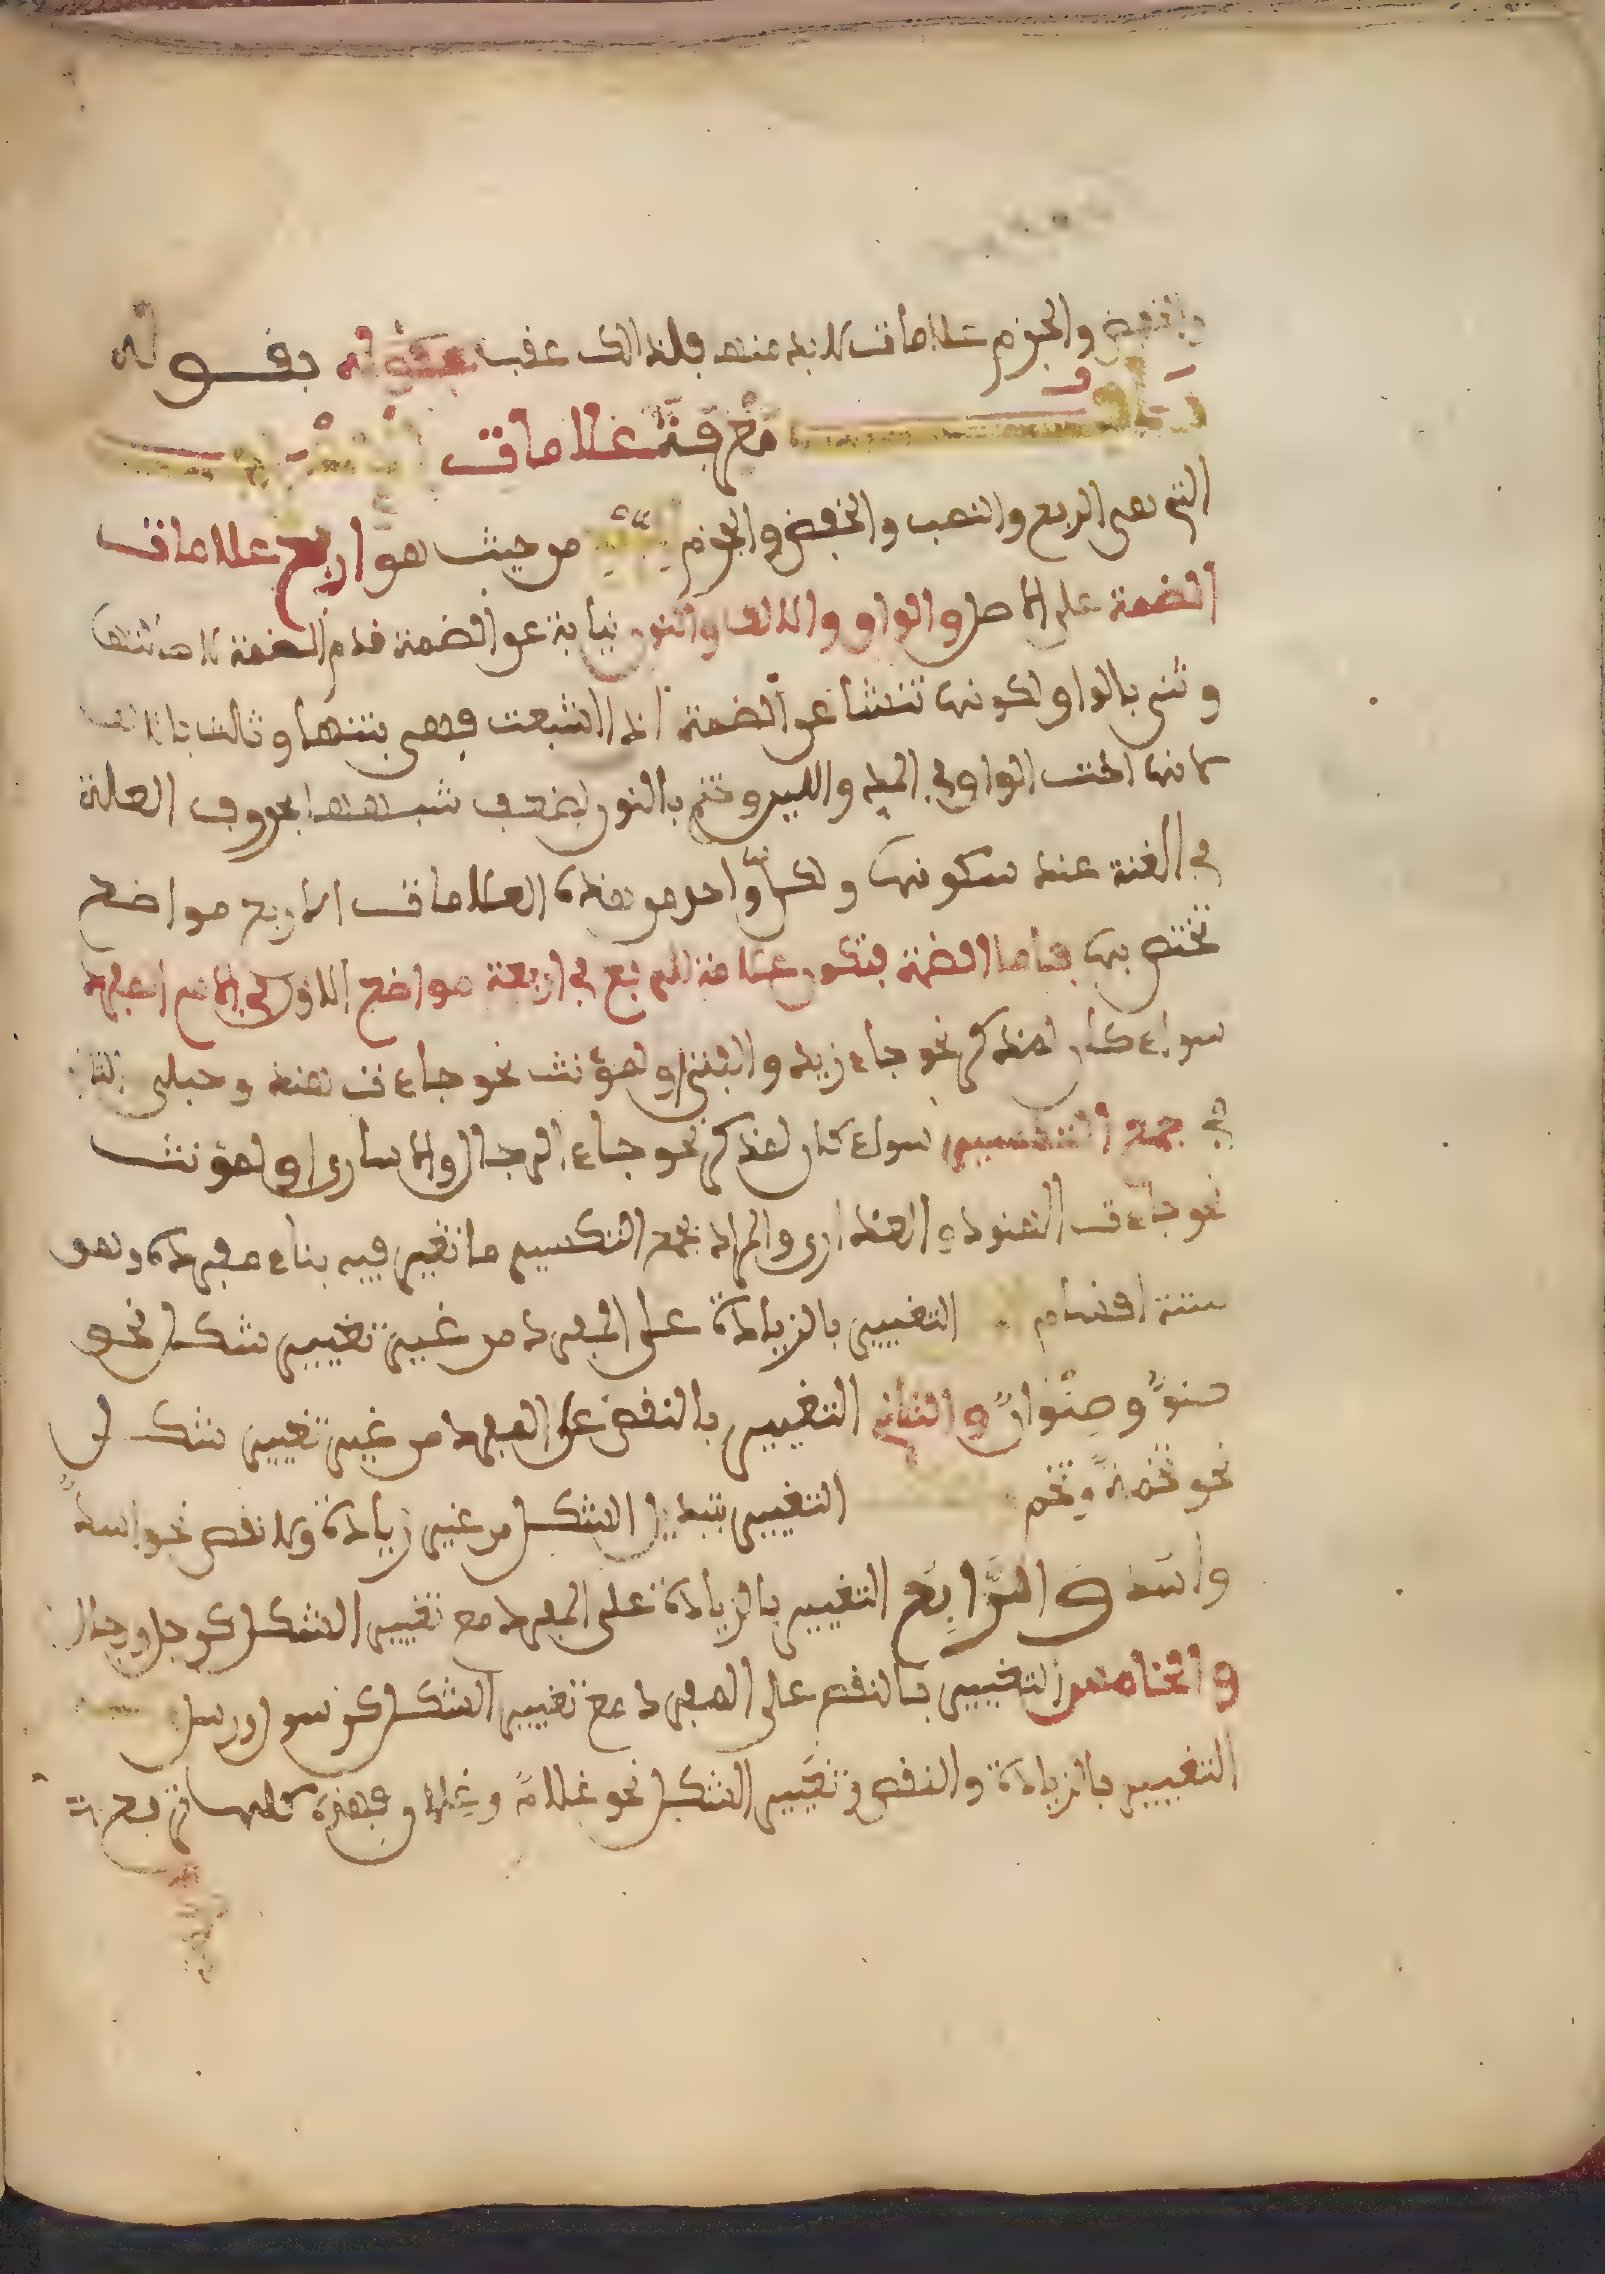 والخفض والجزم علامات لا بد منها فلذالك عقبه بقوله
باب معرفة علامات
التي هي الرفع والنصب والخفض والجزم للرفع من حيث هو اربع علامات
الضمة على الاصل والواو والالف والنون نيابة عن الضمة قدم الضمة لاصالتها
وثنى بالواو لكونها تنشا عن الضمة اذا اشبعت فهي بنتها وثالث بالالف
لانها اخت الواو في المد واللين وختم بالنون لضعف شبهها بحروف العلة
في الغنة عند سكونها ولكل واحد من هذه العلامات الاربع مواضع
تختص بها فاما الضمة فتكون علامة للرفع في اربعة مواضع الاول في الاسم المفرد
سواء كان لمذكر نحو جاء زيد والفتى او لمؤنث نحو جاءت هند وحبلى الثاني
في جمع التكسير سواء كان لمذكر نحو جاء الرجال والاسارى او لمؤنث
نحو جاءت الهنود والعذارى والمراد بجمع التكسير ما تغير فيه بناء مفرده وهو
ستة اقسام التغيير بالزيادة على المفرد من غير تغيير شكل نحو
صنو وصنوان والثاني التغيير بالنقص على المفرد من غير تغيير شكل
نحو تخمة وتخم التغيير بتبديل الشكل من غير زيادة ولا نقص نحو اسد
واسد والرابع التغيير بالزيادة على المفرد مع تغيير الشكل كرجل ورجال
والخامس التغيير بالنقص على المفرد مع تغيير الشكل كرسول ورسل
التغيير بالزيادة والنقص وتغيير الشكل نحو غلام وغلمان فهذه كلها ترفع